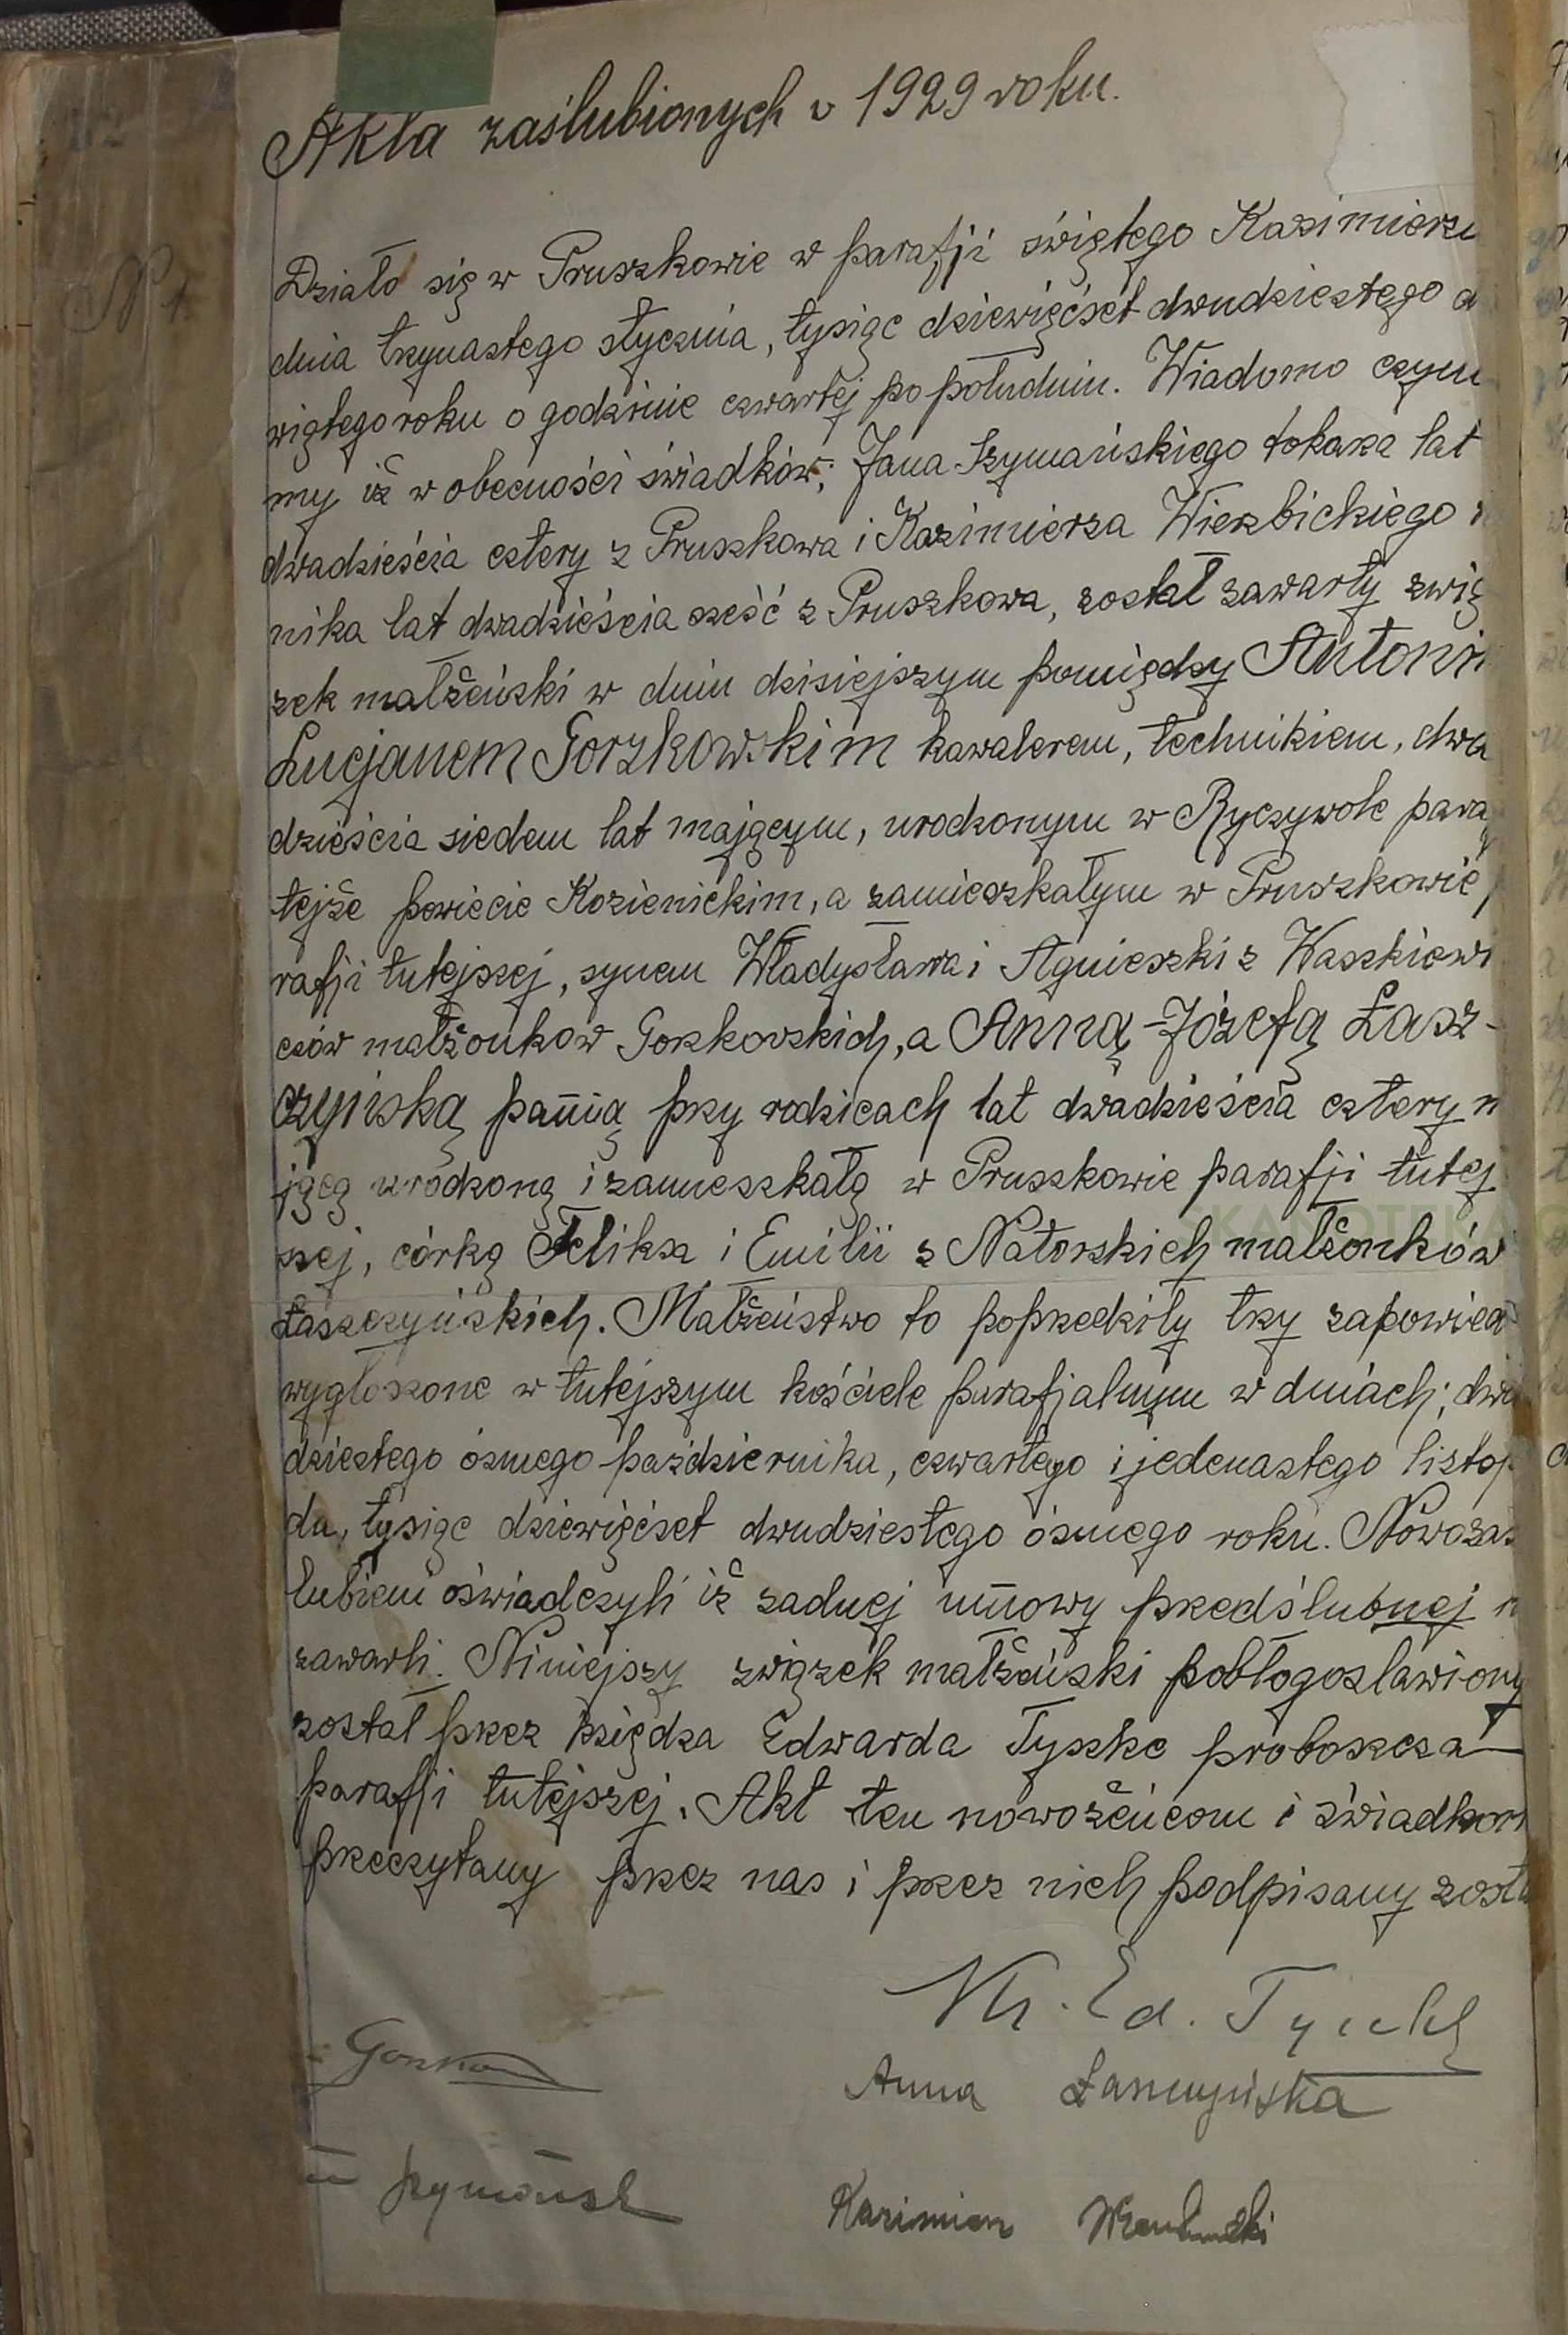 Akta zaślubionych w 1929 roku.
N 1.
Działo się w Pruszkowie w parafji świętego Kazimierza
dnia trzynastego stycznia, tysiąc dziewięćset dwudziestego d
wiątego roku o godzinie czwartej po południu. Wiadomo czyni
my iż w obecności świadków; Jana Szymańskiego tokarza lat
dwadzieścia cztery z Pruszkowa i Kazimierza Wierzbickiego
nika lat dwadzieścia sześć z Pruszkowa, został zawarty zwią
zek małżeński w dniu dzisiejszym pomiędzy Antonim
Lucjanem Gorzkowskim kawalerem, technikiem, dwa
dzieścia siedem lat mającym, urodzonym w Ryczywole para
tejże powiecie Kozienickim, a zamieszkałym w Pruszkowie p
rafji tutejszej, synem Władysława i Agnieszki z Waszkiewi
czów małżonków Gorzkowskich, a Anną-Józefą Łasz-
czyńską panną przy rodzicach lat dwadzieścia cztery m
jącą urodzoną i zamieszkałą w Pruszkowie parafji tutej
szej, córką Feliksa i Emilii z Natorskich małżonków
Łaszczyńskich. Małżeństwo to poprzedziły trzy zapowied
wygłoszone w tutejszym kościele parafjalnym w dniach; dwu
dziestego ósmego października, czwartego i jedenastego listop
da, tysiąc dziewięćset dwudziestego ósmego roku. Nowozaś
lubieni oświadczyli iż żadnej umowy przedślubnej n
zawarli. Niniejszy związek małżeński pobłogosławiony
został przez księdza Edwarda Tyszkę proboszcza
parafji tutejszej. Akt ten nowożeńcom i świadkom
przeczytany przez nas i przez nich podpisany został
Ks. Ed. Tyszka
Gorzko
Anna Łaszczyńska
Szymańsk
Kazimierz Wierzbicki